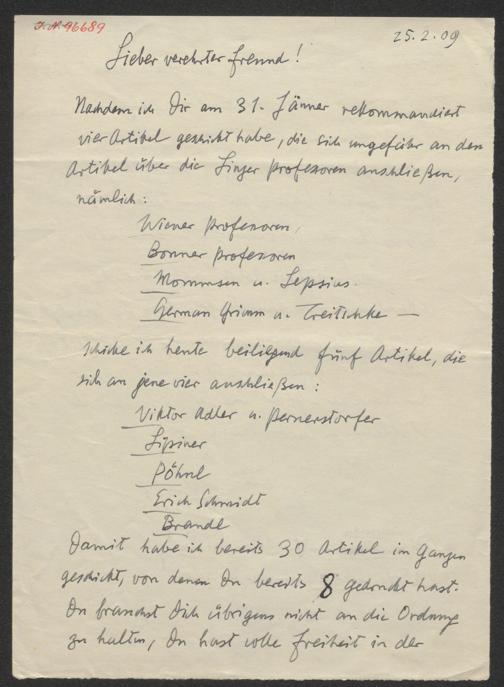 I.N. 96689
25.2.09
Lieber verehrter Freund!
Nachdem ich Dir am 31. Jänner rekommandiert
vier Artikel geschickt habe, die sich ungefähr an den
Artikel über die Linzer Professoren anschließen,
nämlich:
Wiener Professoren,
Bonner Professoren
Mommsen u. Lepsius.
German Grimm u. Treitschke —
schicke ich heute beiliegend fünf Artikel, die
sich an jene vier anschließen:
Viktor Adler u. Pernerstorfer
Lipiner
Pöhnl
Erich Schmidt
Brandl
Damit habe ich bereits 30 Artikel im Ganzen
geschickt, von denen Du bereits 8 gedruckt hast.
Du brauchst Dich übrigens nicht an die Ordnung
zu halten, Du hast volle Freiheit in der